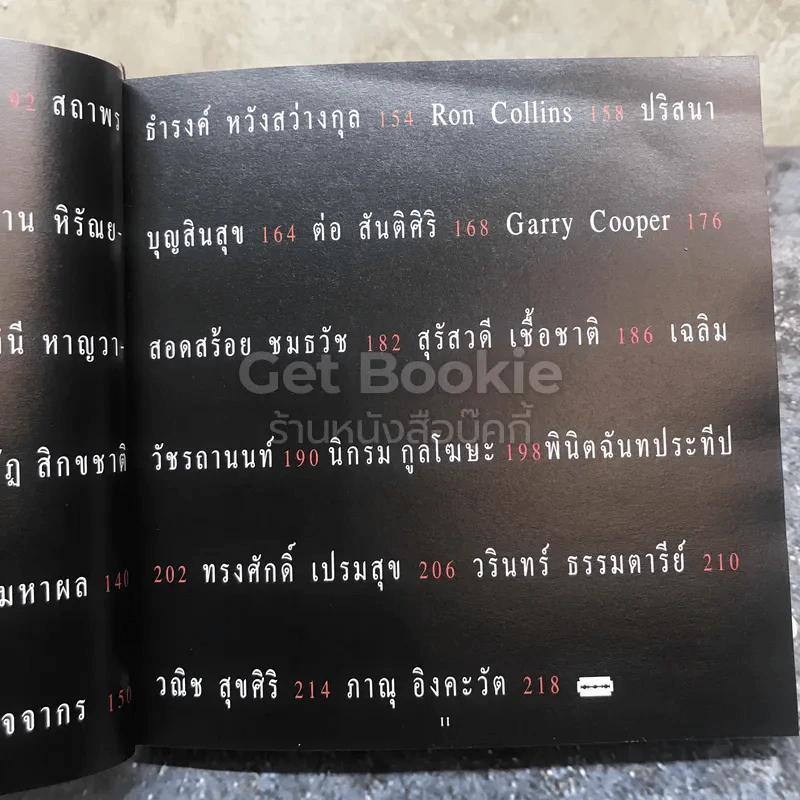 92 สถาพร
หิรัณย-
หาญวา-
สิกขชาติ
มหาผล 140
150
ธำรงค์ หวังสว่างกุล 154 Ron Collins 158 ปริสนา
บุญสินสุข 164 ต่อ สันติศิริ 168 Garry Cooper 176
สอดสร้อย ชมธวัช 182 สุรัสวดี เชื้อชาติ 186 เฉลิม
Get Bookie
ร้านหนังสือบุ๊คกี้
วัชรถานนท์ 190 นิกรม กูลโฆษะ 198 พินิตฉันทประทีป
202 ทรงศักดิ์ เปรมสุข 206 วรินทร์ ธรรมตารีย์ 210
วณิช สุขศิริ 214 ภาณุ อิงคะวัต 218
11